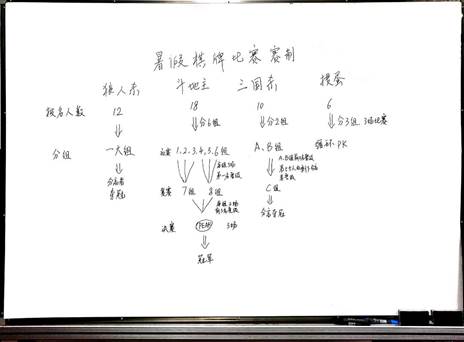 暑假棋牌比赛赛制
狼人杀 斗地主 三国杀 掼蛋
报名人数 12 18 10 6
分6组 分2组 分3组 3场比赛
分组 一大组 初赛 1、2、3、4、5、6组 A、B组 循环PK
分高者
夺冠
每组3场
第一名晋级
复赛 7组 8组 C组
分高夺冠
决赛 3场
冠军